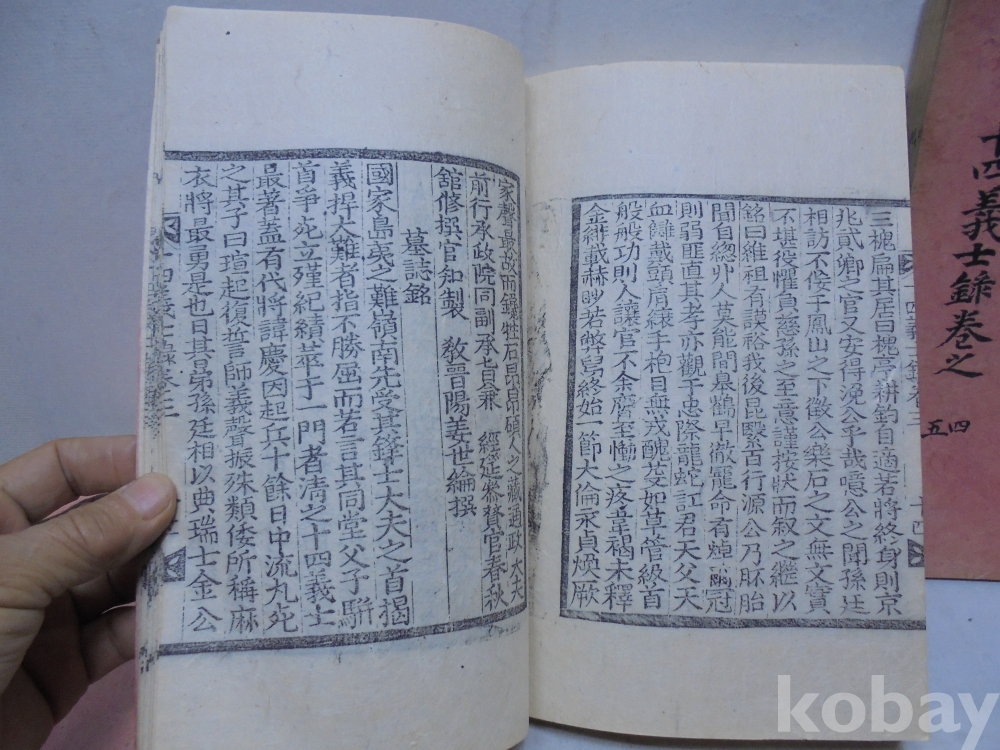 三槐扁其居曰槐亭耕釣自適若將終身則京
兆貳卿之官又安得浼公乎哉噫公之聞孫廷
相訪不佞于鳳山之下徵公樂石之文無文實
不堪役懼負慈孫之至意謹按狀而叙之繼以
銘曰維祖有謨裕我後昆繄百行源公乃胚胎
間自總丱人莫能間臯鶴早徹寵命有焯冠
則弱匪直其孝亦觀于忠際龍蛇訌君天父天
血讎戴頭肩縗手枹日無戎醜芟如草管級百
般般功則人讓官不余齊至慟之疚韋褐未釋
金緋載赫眇若弊舄終始一節大倫永貞煥厥
家聲最故而鑱牲石昂昂碩人之藏通政大夫
前行承政院同副承旨兼 經筵參贊官春秋
舘修撰官知製 教晉陽姜世綸撰
墓誌銘
國家島夷之難嶺南先受其鋒士大夫之首揭
義捍大難者指不勝屈而若言其同堂父子駢
首爭死立殣紀績萃于一門者清之十四義士
最著盖有代將諱慶因起兵十餘日中流丸死
之其子曰瑄起復誓師義聲振殊類倭所稱麻
衣將最勇是也日其昆弟孫廷相以典瑞士金公
十四義士錄卷之
四
五
kobay